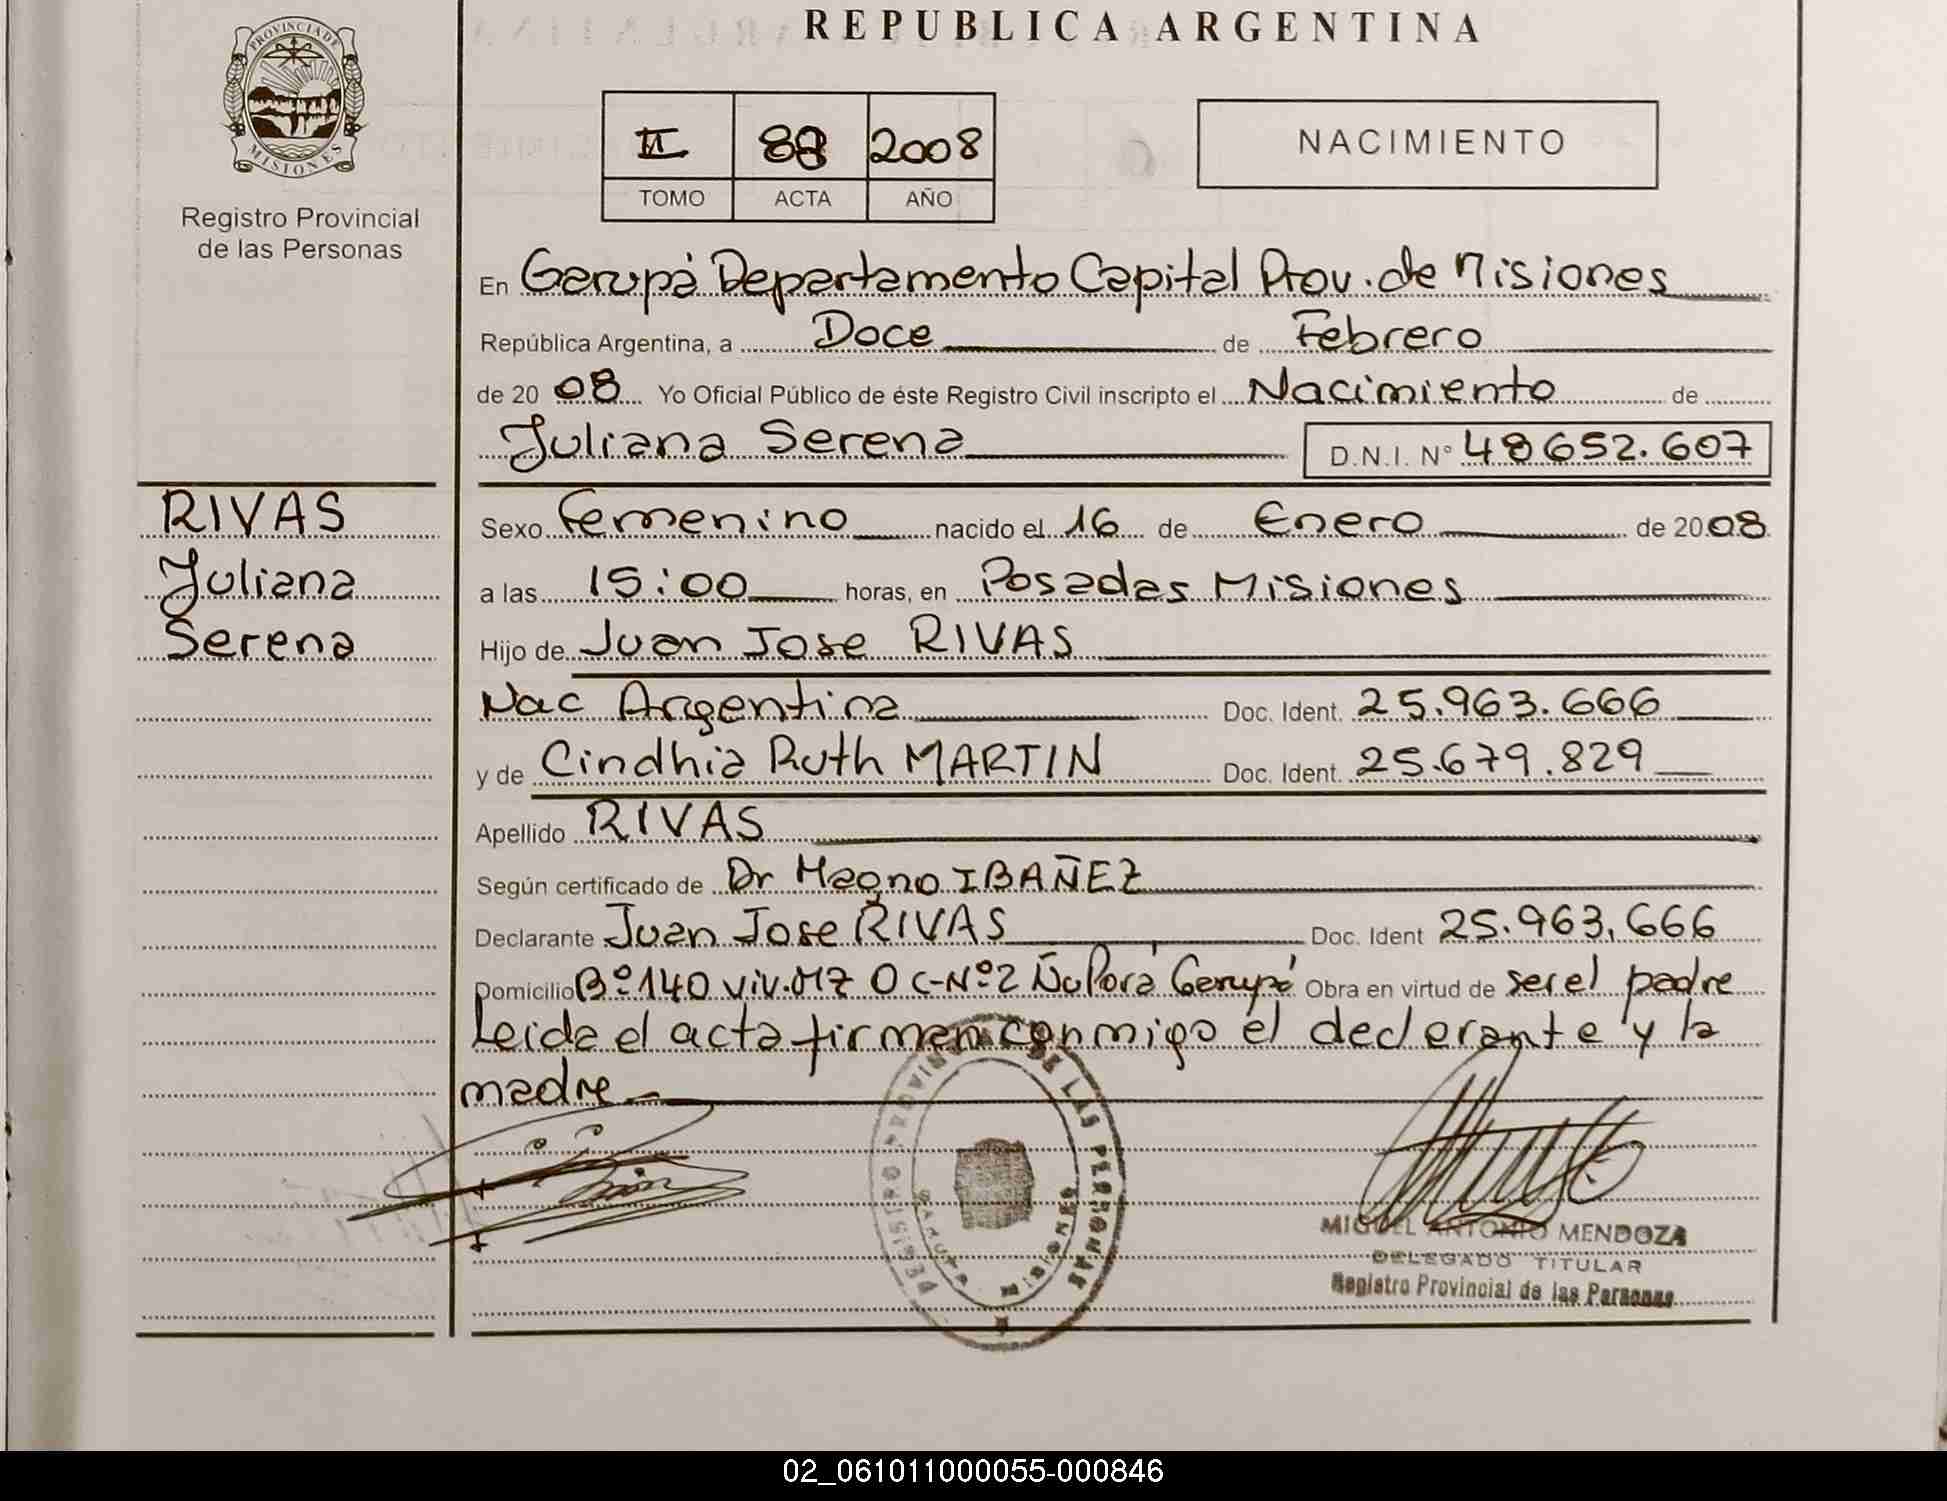 REPUBLICA ARGENTINA
PROVINCIA DE
MISIONES
Registro Provincial
de las Personas
II 2008
TOMO ACTA AÑO
NACIMIENTO
En Garupá Departamento Capital Prov. de Misiones
República Argentina, a Doce de Febrero
de 20 08 Yo Oficial Público de éste Registro Civil inscripto el Nacimiento de
Juliana Serena D.N.I. N° 48652.607
RIVAS
Juliana
Serena
Sexo Femenino nacido el 16 de Enero de 20 08
a las 15:00 horas, en Posadas Misiones
Hijo de Juan Jose RIVAS
Nac Argentina Doc. Ident. 25.963.666
y de Cindhia Ruth MARTIN Doc. Ident. 25.679.829
Apellido RIVAS
Según certificado de Dr Magno IBAÑEZ
Declarante Juan Jose RIVAS Doc. Ident 25.963.666
Domicilio B° 140 viv. MZ O C-N°2 Ñu Porá Garupá Obra en virtud de ser el padre
Leida el acta firman conmigo el declarante y la
madre
REGISTRO PROVINCIAL DE LAS PERSONAS
GARUPA MISIONES
MIGUEL ANTONIO MENDOZA
DELEGADO TITULAR
Registro Provincial de las Personas
02_061011000055-000846